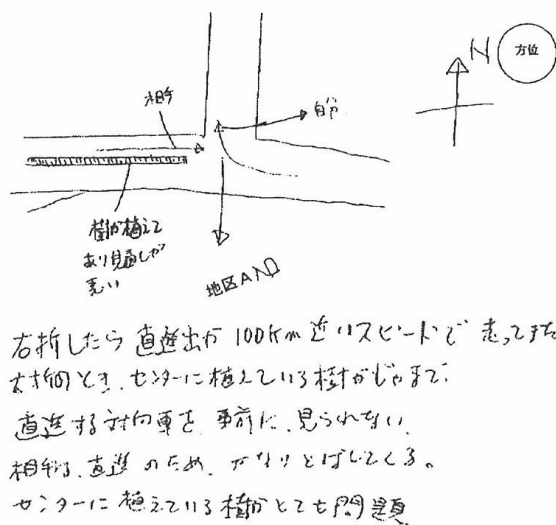 N
方位
相手
自分
樹が植えて
あり見通しが
悪い
地区AND
右折したら直進出が100Km近いスピードで走ってきた
右折のとき、センターに植えている樹がじゃまで、
直進する対向車を事前に、見られない。
相手も、直進のため、かなりとばしてくる。
センターに植えている樹がとても問題